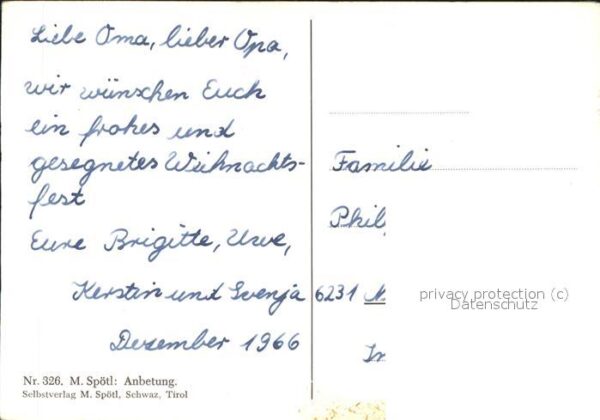 Liebe Oma, lieber Opa,
wir wünschen Euch
ein frohes und
gesegnetes Weihnachts-
fest
Eure Brigitte, Uwe,
Kerstin und Svenja
Dezember 1966
Nr. 326. M. Spötl: Anbetung.
Selbstverlag M. Spötl, Schwaz, Tirol
Familie
Phil
6231
privacy protection (c)
Datenschutz